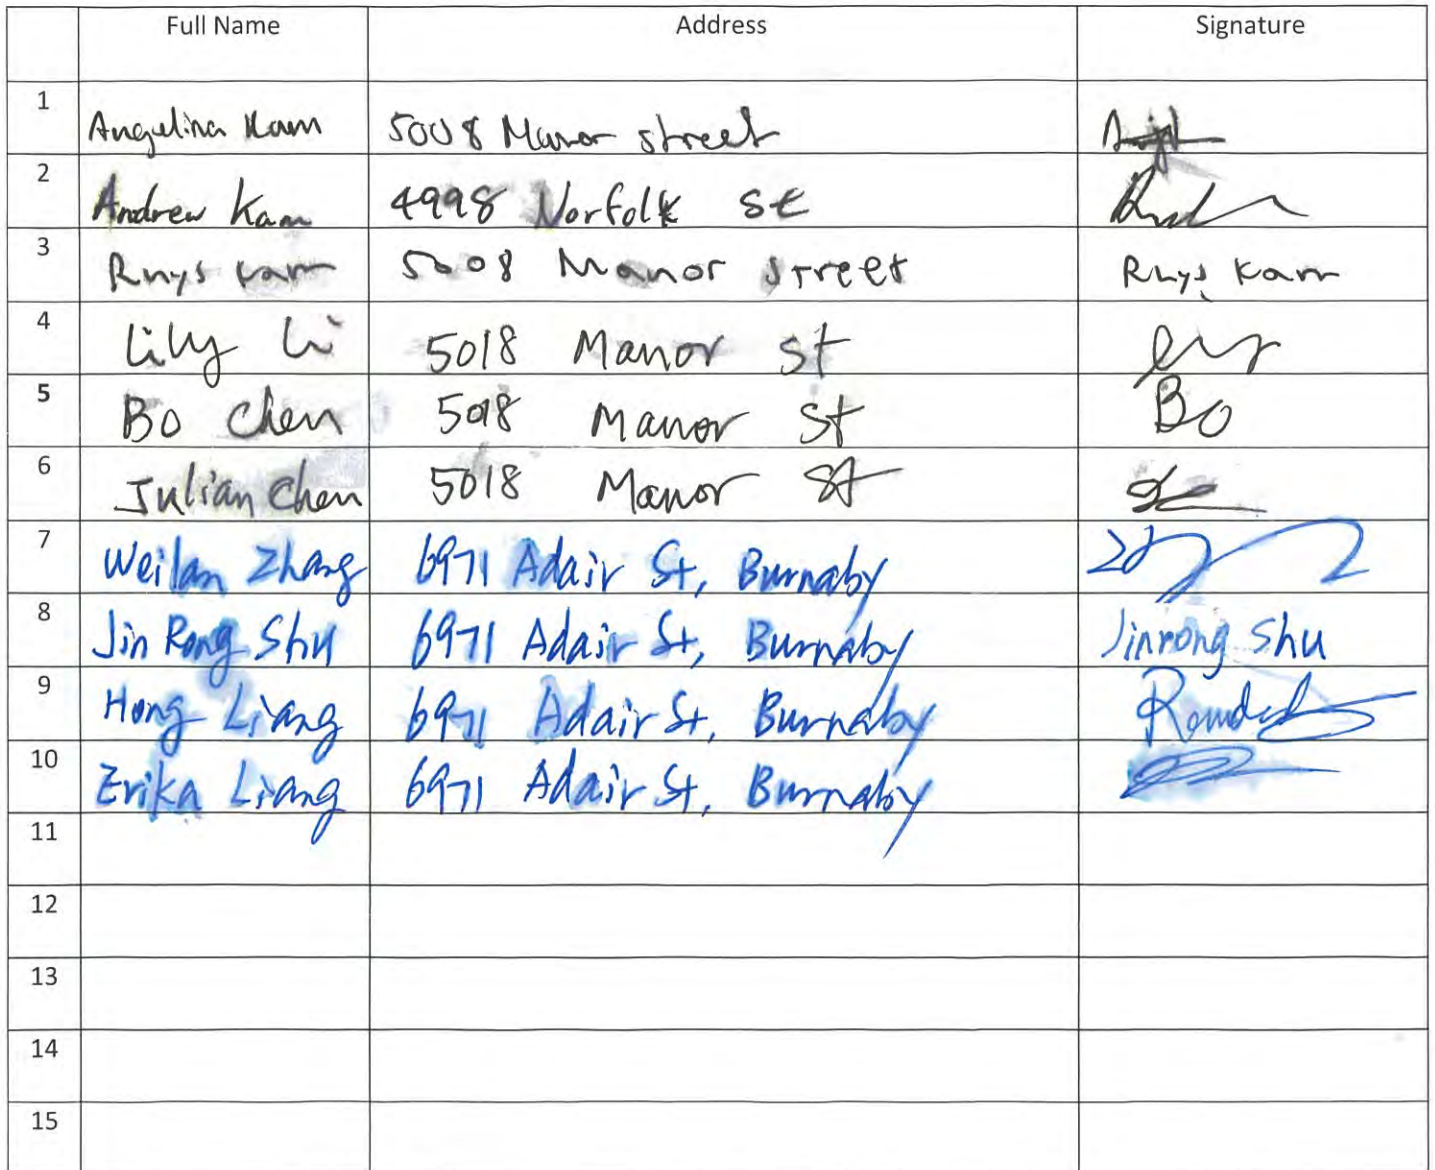 Full Name Address Signature
1 Angelina Kam 5008 Manor street
2 Andrew Kam 4998 Norfolk St
3 Rhys Kam 5008 Manor Street Rhys Kam
4 Lily Li 5018 Manor St
5 Bo Chen 5018 Manor St Bo
6 Julian Chen 5018 Manor St
7 Weilan Zhang 6971 Adair St, Burnaby
8 Jin Rong Shu 6971 Adair St, Burnaby Jinrong Shu
9 Hong Liang 6971 Adair St, Burnaby
10 Erika Liang 6971 Adair St, Burnaby
11
12
13
14
15